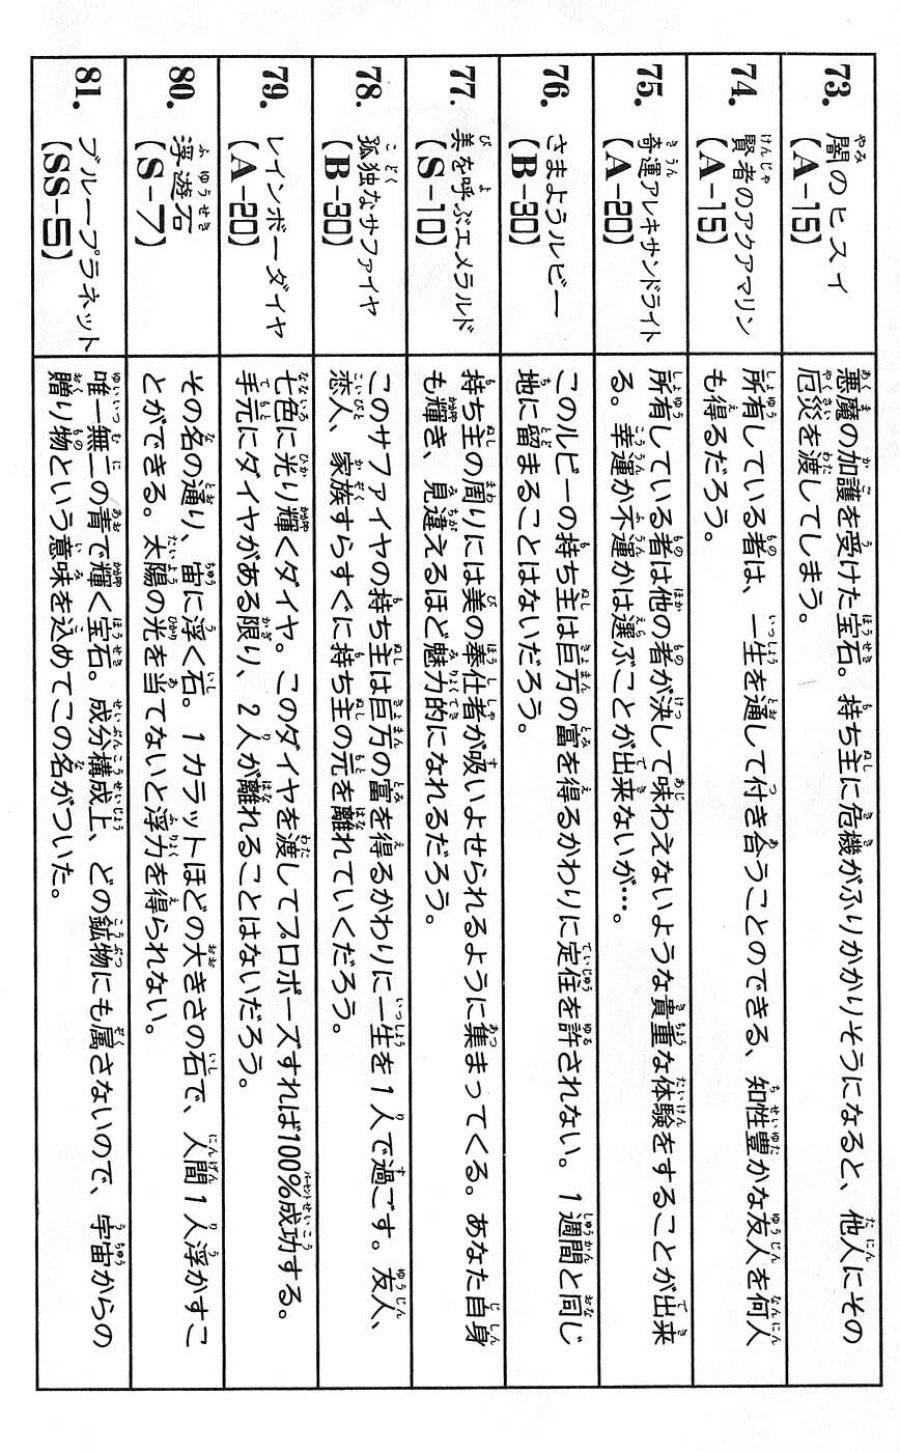 73. 闇のヒスイ
(A-15)
悪魔の加護を受けた宝石。持ち主に危機がふりかかりそうになると、他人にその
厄災を渡してしまう。
74. 賢者のアクアマリン
(A-15)
所有している者は、一生を通して付き合うことのできる、知性豊かな友人を何人
も得るだろう。
75. 奇運アレキサンドライト
(A-20)
所有している者は他の者が決して味わえないような貴重な体験をすることが出来
る。幸運か不運かは選ぶことが出来ないが…。
76. さまようルビー
(B-30)
このルビーの持ち主は巨万の富を得るかわりに定住を許されない。1週間と同じ
地に留まることはないだろう。
77. 美を呼ぶエメラルド
(S-10)
持ち主の周りには美の奉仕者が吸いよせられるように集まってくる。あなた自身
も輝き、見違えるほど魅力的になれるだろう。
78. 孤独なサファイヤ
(B-30)
このサファイヤの持ち主は巨万の富を得るかわりに一生を1人で過ごす。友人、
恋人、家族すらすぐに持ち主の元を離れていくだろう。
79. レインボーダイヤ
(A-20)
七色に光り輝くダイヤ。このダイヤを渡してプロポーズすれば100%成功する。
手元にダイヤがある限り、2人が離れることはないだろう。
80. 浮遊石
(S-7)
その名の通り、宙に浮く石。1カラットほどの大きさの石で、人間1人浮かすこ
とができる。太陽の光を当てないと浮力を得られない。
81. ブループラネット
(SS-5)
唯一無二の青で輝く宝石。成分構成上、どの鉱物にも属さないので、宇宙からの
贈り物という意味を込めてこの名がついた。